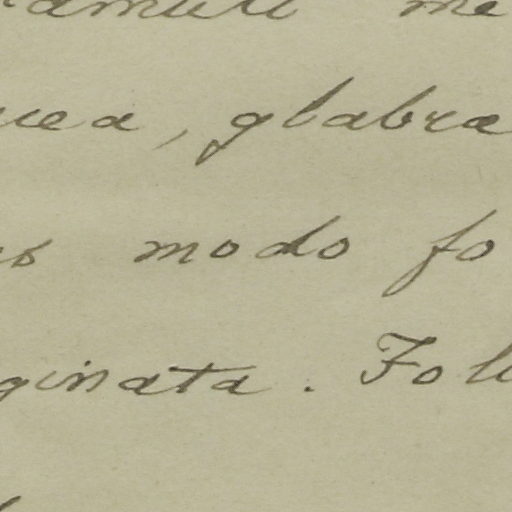 ramuli me
cea, glabra
modo fo
ginata. Foli